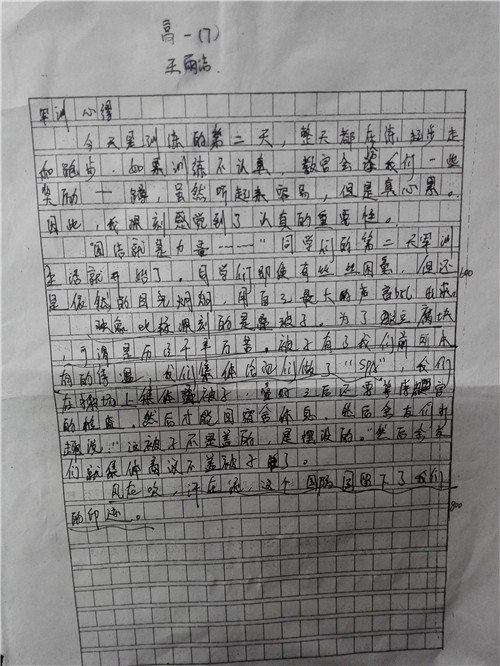 高一(7)
王丽洁
军训心得
今天是训练的第二天，整天都在练起步走
和跑步。如果训练不认真，教官会给我们一些
奖励——蹲，虽然听起来容易，但是真心累。
因此，我深刻感觉到了认真的重要性。
"团结就是力量……"同学们的第二天军训
生活就开始了。同学们即使有些困意，但还
是依然的目光炯炯，用自己最大的声音
600
印象比较深刻的是叠被子。为了
，可谓是历尽千辛万苦。被子有了我们前所未
有的待遇，我们集体给它们做了"SPA"，我们
在操场上集体叠被子，叠好之后还要等待教官
的检查，然后才能回宿舍休息，然后舍友们打
趣说："这被子不是盖的，是摆设的。"然后舍友
们就集体商议不盖被子了。
风在吹，汗在流，这个团队留下了我们
的印迹。
800